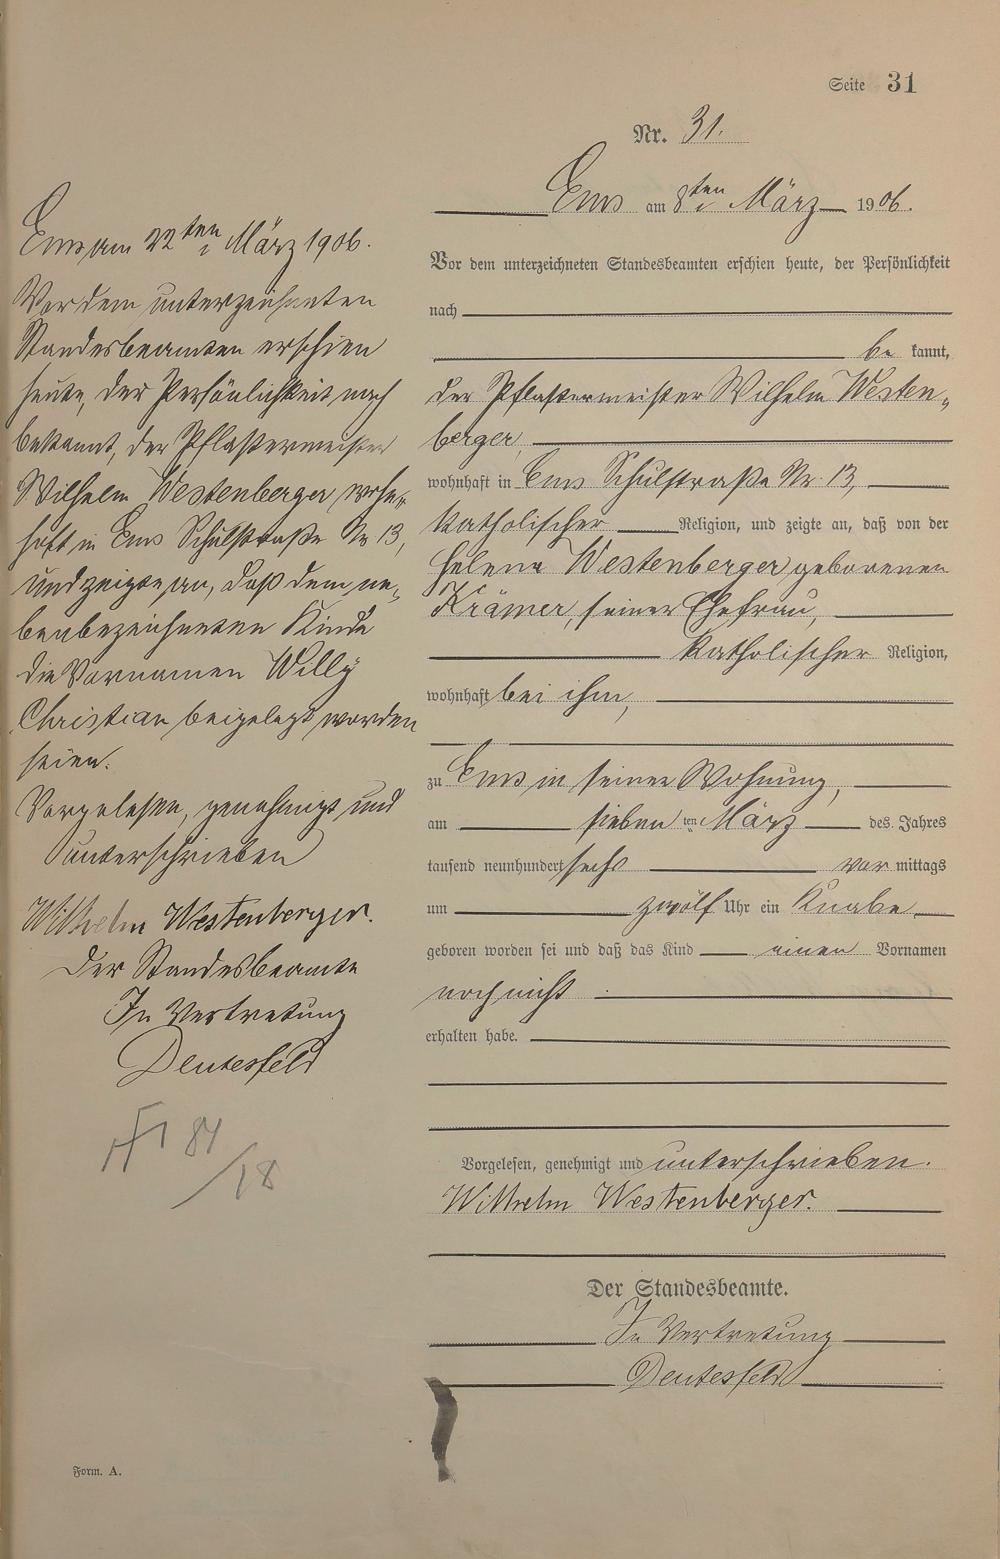 Seite 31
Nr. 31.
Ems am 8ten März 1906.
Vor dem unterzeichneten Standesbeamten erschien heute, der Persönlichkeit
nach
be kannt,
der Pflastermeister Wilhelm Westen-
berger,
wohnhaft in Ems Schulstraße Nr. 13,
katholischer Religion, und zeigte an, daß von der
Helena Westenberger geborenen
Krämer, seiner Ehefrau,
katholischer Religion,
wohnhaft bei ihm,
zu Ems in seiner Wohnung,
am sieben ten März des Jahres
tausend neunhundert sechs vor mittags
um zwölf Uhr ein Knabe
geboren worden sei und daß das Kind einen Vornamen
noch nicht
erhalten habe.
Vorgelesen, genehmigt und unterschrieben.
Wilhelm Westenberger.
Der Standesbeamte.
In Vertretung
Deutesfeld
Ems am 22ten März 1906.
Vor dem unterzeichneten
Standesbeamten erschien
heute, der Persönlichkeit nach
bekannt, der Pflastermeister
Wilhelm Westenberger wohn-
haft in Ems Schulstraße Nr 13,
und zeigte an, daß dem ne-
benbezeichneten Kinde
die Vornamen Willy
Christian beigelegt worden
seien.
Vorgelesen, genehmigt und
unterschrieben
Wilhelm Westenberger.
Der Standesbeamte
In Vertretung
Deutesfeld
84
/18
Form. A.